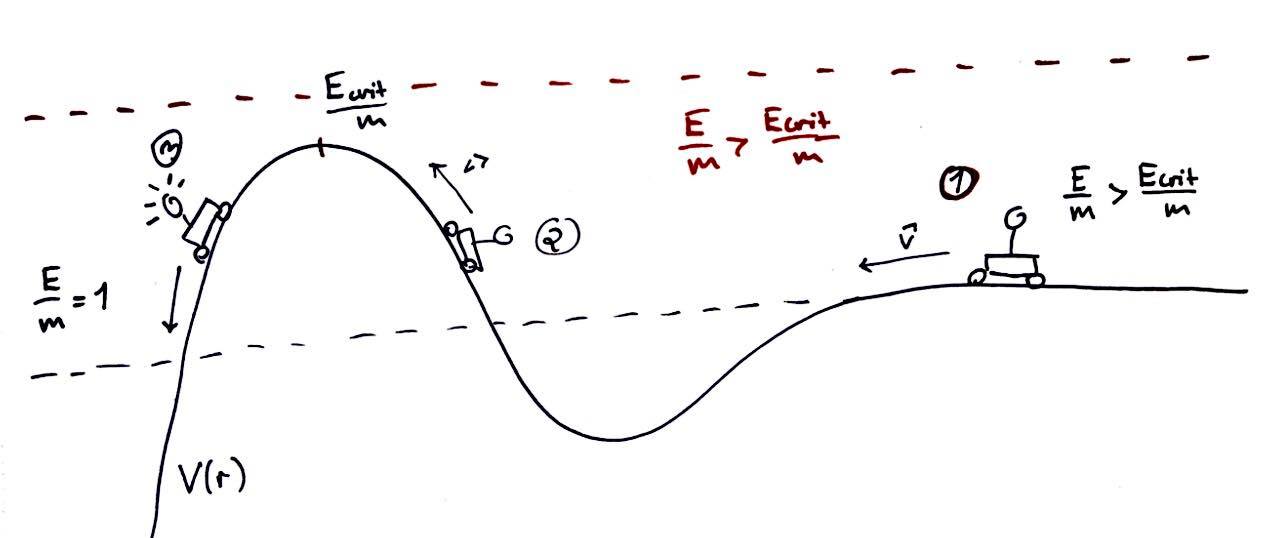 E_crit/m
E/m > E_crit/m
1
E/m > E_crit/m
v⃗
v⃗
2
3
E/m = 1
V(r)